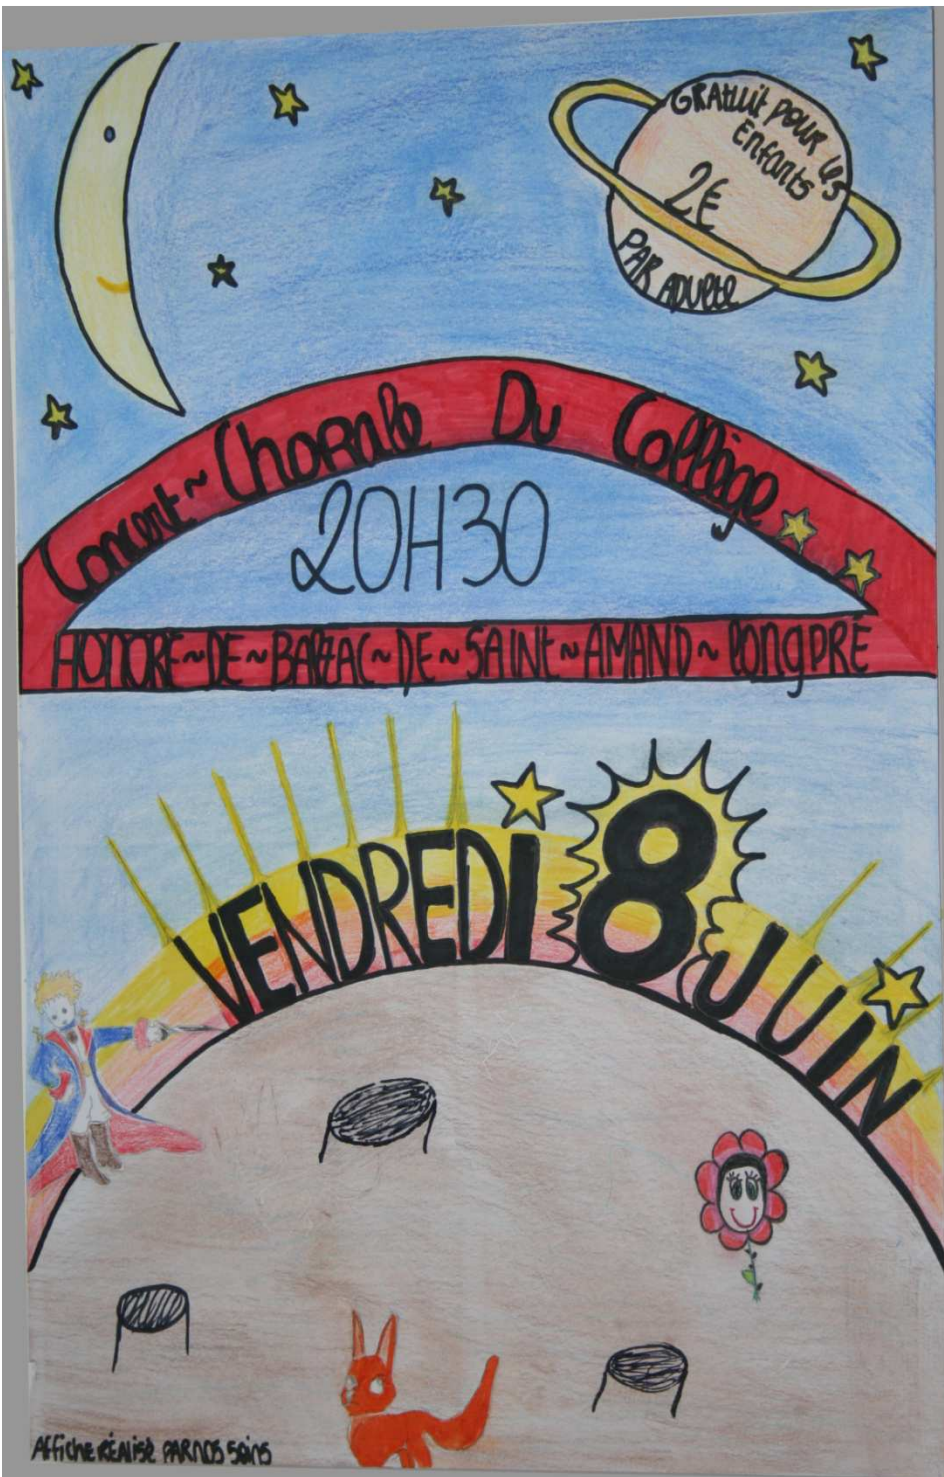 GRAtuit pour les
Enfants
2€
PAR ADULTE
Concert~Chorale Du Collège
20H30
HONORE~DE~BALZAC~DE~SAINt~AMAND~LONgPRÉ
VENDREDI 8 JUIN
Affiche RÉALISÉ PAR NOS SOINS